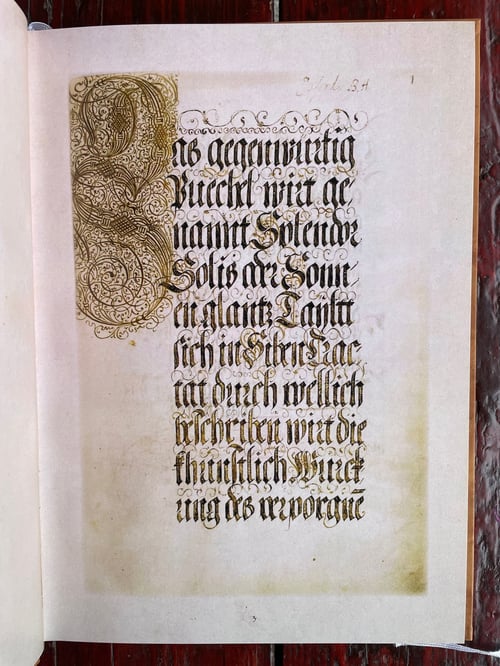 Splendor B.A. 1
Das gegenwirtig
Buechel wirt ge
nannt Splendor
Solis oder Sonn
en glantz Taÿltt
sich in Siben Trac
tat durch wellich
beschriben wirt die
khunstlich Wurck
ung des verporgnē